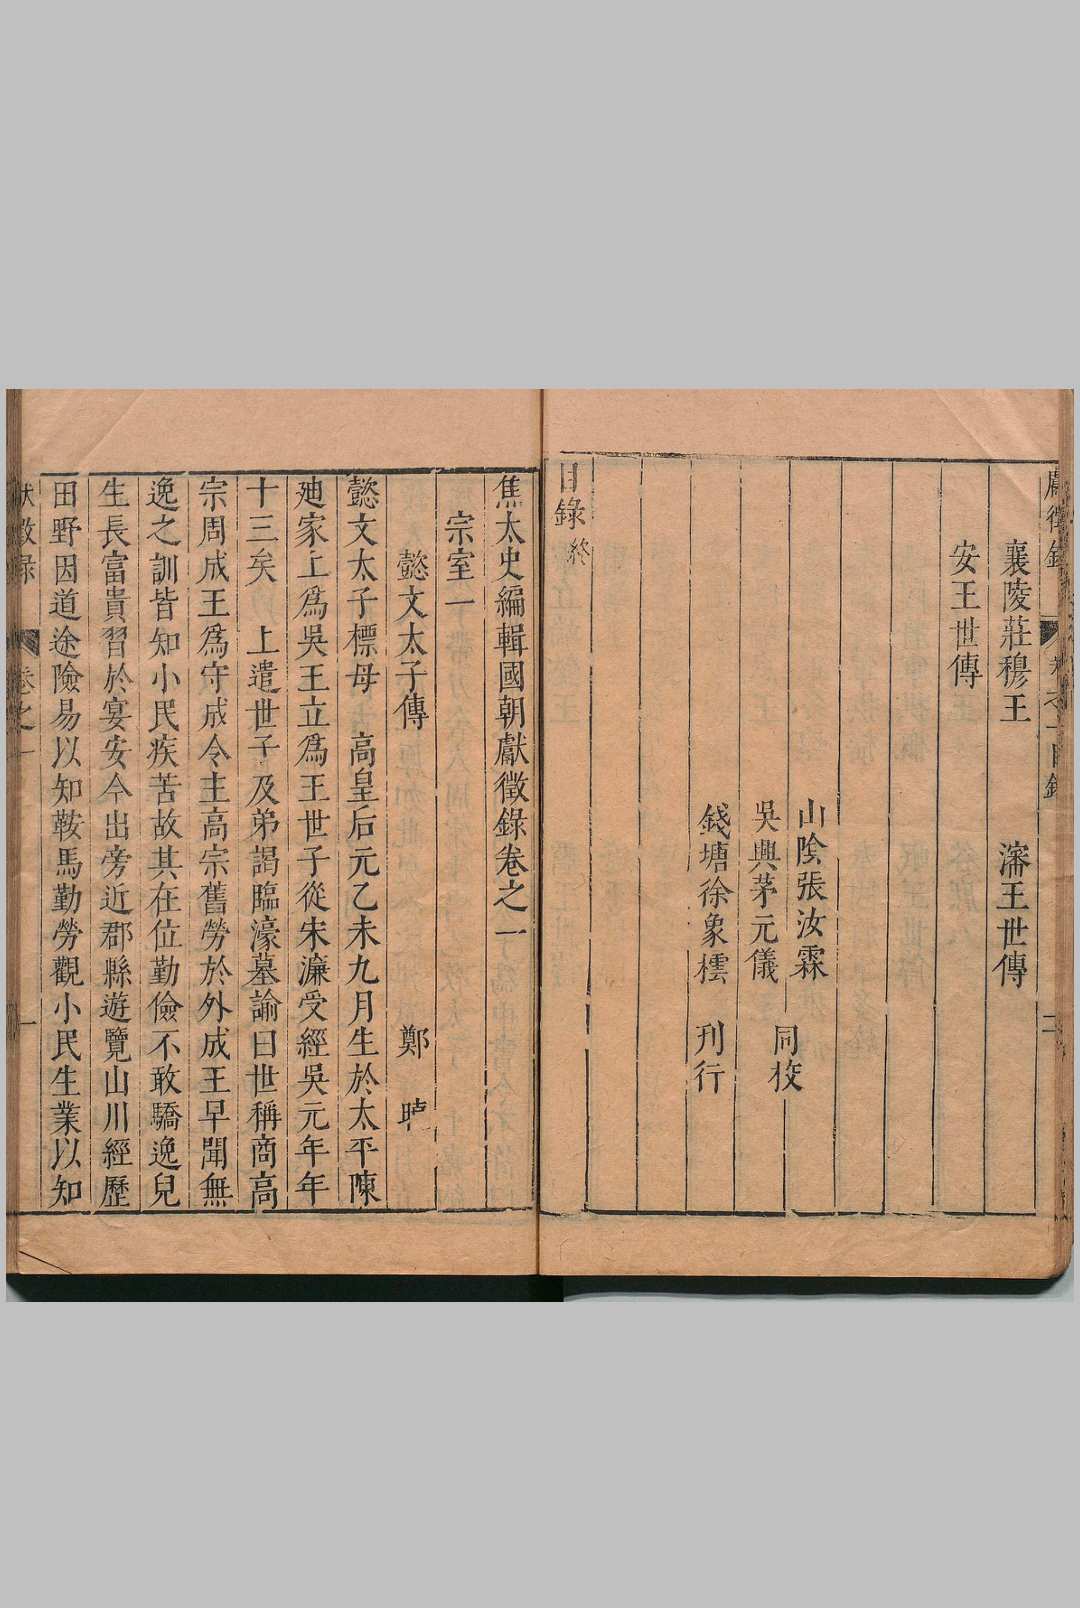 獻徵錄 卷之一目錄 二
襄陵莊穆王 瀋王世傳
安王世傳
山陰張汝霖
同校
吳興茅元儀
錢塘徐象橒 刊行
目錄終
焦太史編輯國朝獻徵錄卷之一
宗室一
懿文太子傳 鄭曉
懿文太子標母 高皇后元乙未九月生於太平陳
廸家上爲吳王立爲王世子從宋濂受經吳元年年
十三矣 上遣世子及弟謁臨濠墓諭曰世稱商高
宗周成王爲守成令主高宗舊勞於外成王早聞無
逸之訓皆知小民疾苦故其在位勤儉不敢驕逸兒
生長富貴習於宴安今出旁近郡縣遊覽山川經歷
田野因道途險易以知鞍馬勤勞觀小民生業以知
獻徵录 卷之一 一